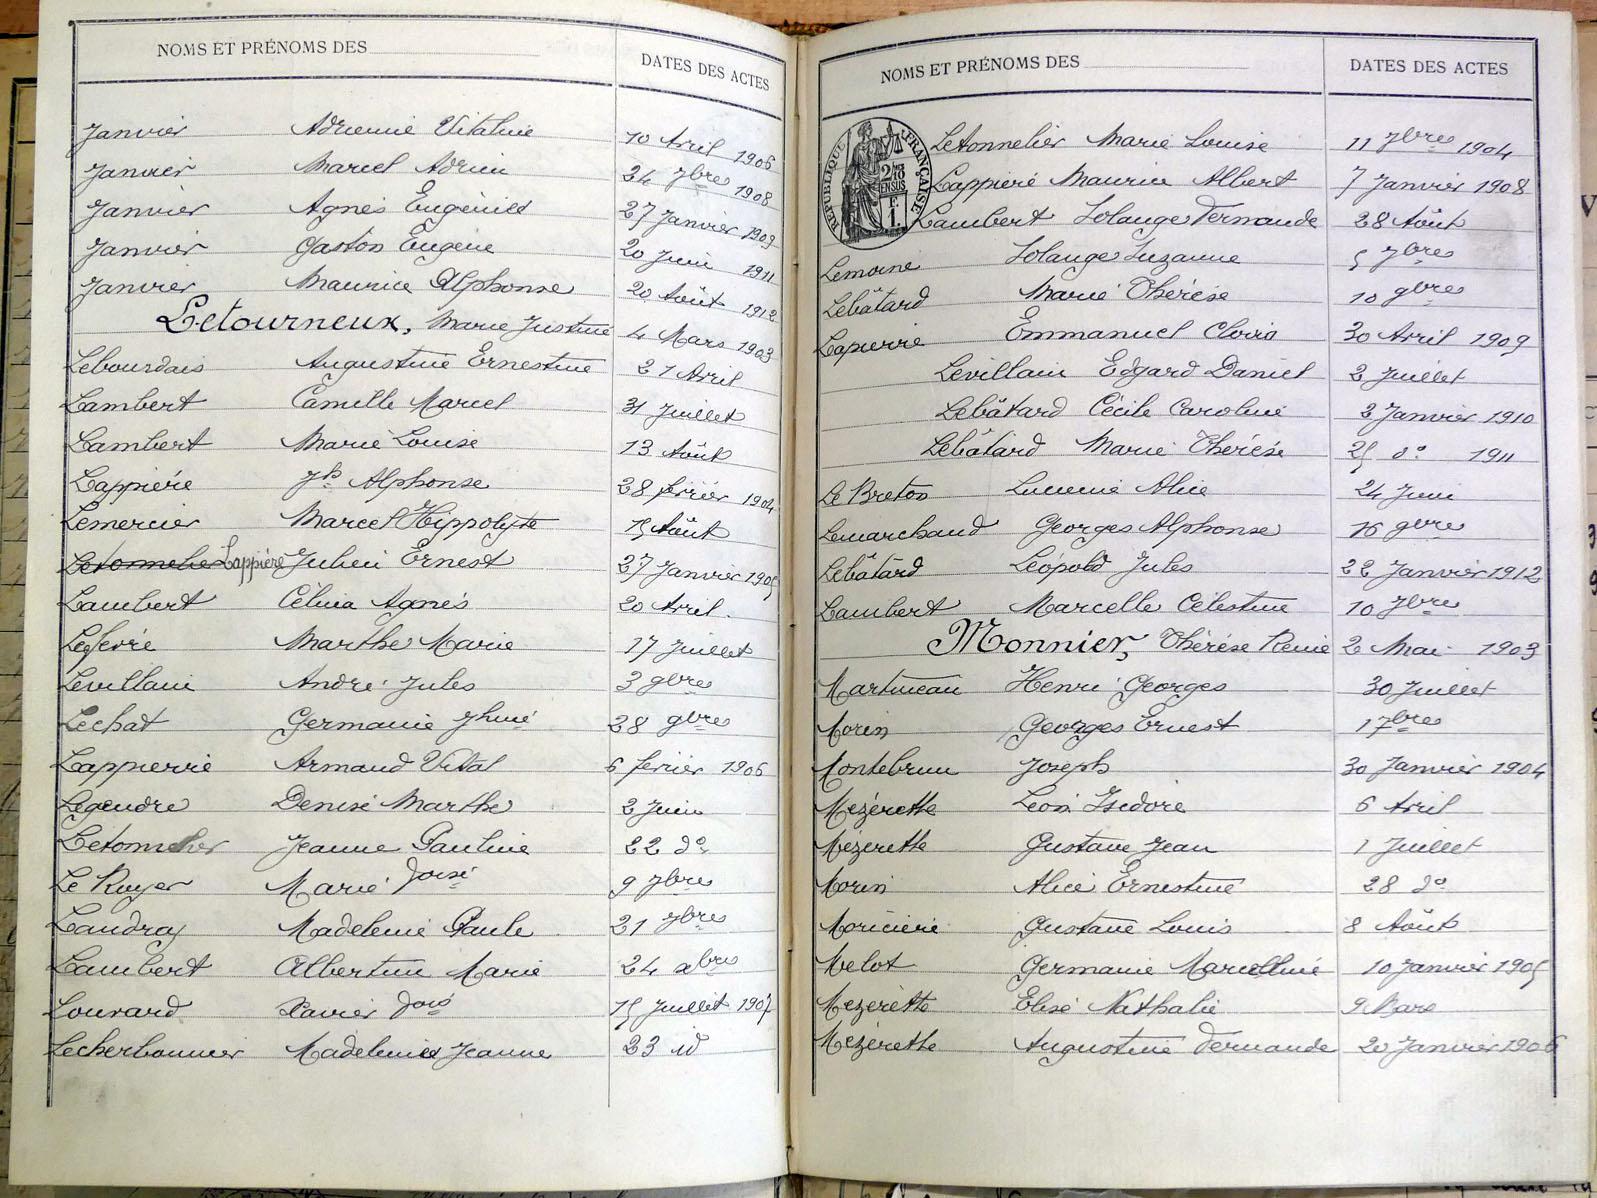 NOMS ET PRÉNOMS DES DATES DES ACTES
Janvier Adrienne Vitaline 10 Avril 1906
Janvier Marcel Adrien 24 7bres 1908
Janvier Agnès Eugénie 27 Janvier 1909
Janvier Gaston Eugène 20 Juin 1911
Janvier Maurice Alphonse 20 Août 1912
Letourneux, Marie Justine 4 Mars 1903
Lebourdais Augustine Ernestine 21 Avril
Lambert Camille Marcel 31 Juillet
Lambert Marie Louise 13 Août
Lappière Jh Alphonse 28 février 1904
Lemercier Marcel Hippolyte 15 Août
Letonnelier Lappière Julien Ernest 27 Janvier 1905
Lambert Célina Agnès 20 Avril.
Lefevre Marthe Marie 17 Juillet
Levillain André Jules 3 9bres
Lechat Germaine 28 9bres
Lappierre Armand Vital 6 février 1906
Legendre Denise Marthe 2 Juin
Letonnelier Jeanne Pauline 22 do
Le Royer Marie 9 7bres
Landray Madeleine Paule 21 7bres
Lambert Albertine Marie 24 xbres
Louvard Xavier 15 Juillet 1907
Lecherbonnier Madeleine Jeanne 23 id
NOMS ET PRÉNOMS DES DATES DES ACTES
RÉPUBLIQUE FRANÇAISE
2/10 EN SUS
F. 1
Letonnelier Marie Louise 11 7bres 1904
Lappiere Maurice Albert 7 Janvier 1908
Lambert Solange Fernande 28 Août
Lemoine Solange Suzanne 5 7bres
Lebâtard Marie Thérèse 10 9bres
Lapierre Emmanuel Clovis 30 Avril 1909
Levillain Edgard Daniel 2 Juillet
Lebâtard Cécile Caroline 2 Janvier 1910
Lebâtard Marie Thérèse 25 do 1911
Le Breton Lucienne Alice 24 Juin
Lemarchand Georges Alphonse 16 9bres
Lebâtard Léopold Jules 22 Janvier 1912
Lambert Marcelle Célestine 10 7bre
Monnier, Thérèse Renée 2 Mai 1903
Martineau Henri Georges 30 Juillet
Morin Georges Ernest 1 7bres
Montebrun Joseph 30 Janvier 1904
Mézerette Léon Isidore 6 Avril
Mézerette Gustave Jean 1 Juillet
Morin Alice Ernestine 28 do
Moricière Gustave Louis 8 Août
Melot Germaine Marcelline 10 Janvier 1905
Mezerette Elise Nathalie 9 Mars
Mézerette Augustine Fernande 20 Janvier 1906